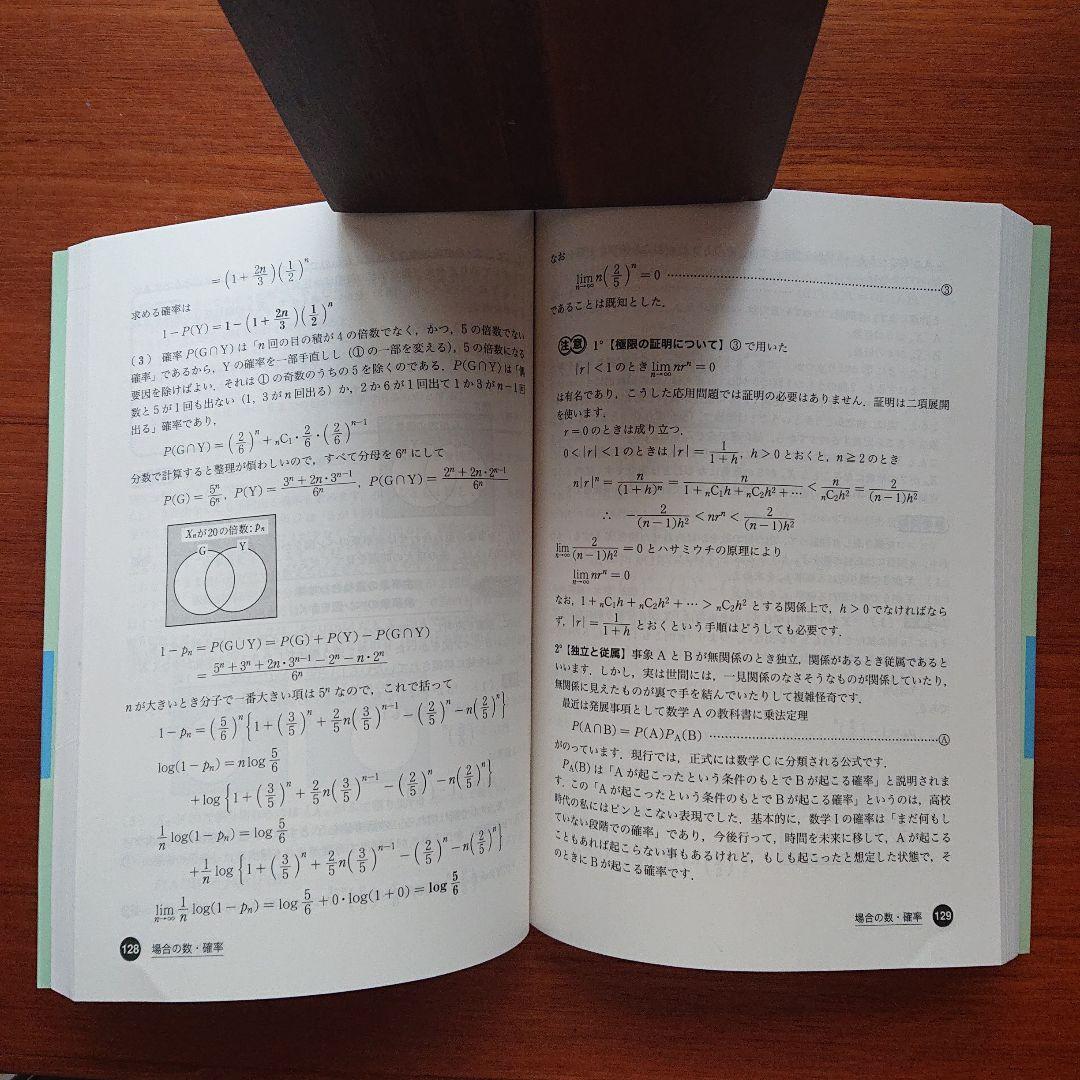 = (1 + 2n/3)(1/2)^n
求める確率は
1 − P(Y) = 1 − (1 + 2n/3)(1/2)^n
(3) 確率 P(G∩Y) は「n 回の目の積が 4 の倍数でなく，かつ，5 の倍数でない
確率」であるから，Y の確率を一部手直しし（①の一部を変える），5 の倍数になる
要因を除けばよい．それは①の奇数のうちの 5 を除くのである．P(G∩Y) は「偶
数と 5 が 1 回も出ない（1，3 が n 回出る）か，2 か 6 が 1 回出て 1 か 3 が n−1 回
出る」確率であり，
P(G∩Y) = (2/6)^n + nC1・2/6・(2/6)^{n−1}
分数で計算すると整理が煩わしいので，すべて分母を 6^n にして
P(G) = 5^n/6^n, P(Y) = (3^n + 2n・3^{n−1})/6^n, P(G∩Y) = (2^n + 2n・2^{n−1})/6^n
Xnが20の倍数：pn
G Y
1 − pn = P(G∪Y) = P(G) + P(Y) − P(G∩Y)
= (5^n + 3^n + 2n・3^{n−1} − 2^n − n・2^n)/6^n
n が大きいとき分子で一番大きい項は 5^n なので，これで括って
1 − pn = (5/6)^n {1 + (3/5)^n + 2/5 n(3/5)^{n−1} − (2/5)^n − n(2/5)^n}
log(1 − pn) = n log 5/6
+ log {1 + (3/5)^n + 2/5 n(3/5)^{n−1} − (2/5)^n − n(2/5)^n}
1/n log(1 − pn) = log 5/6
+ 1/n log {1 + (3/5)^n + 2/5 n(3/5)^{n−1} − (2/5)^n − n(2/5)^n}
lim n→∞ 1/n log(1 − pn) = log 5/6 + 0・log(1 + 0) = log 5/6
128 場合の数・確率
なお
lim n→∞ n(2/5)^n = 0 ……③
であることは既知とした．
注意 1°【極限の証明について】③で用いた
|r| < 1 のとき lim n→∞ nr^n = 0
は有名であり，こうした応用問題では証明の必要はありません．証明は二項展開
を使います．
r = 0 のときは成り立つ．
0 < |r| < 1 のときは |r| = 1/(1+h)，h > 0 とおくと，n ≧ 2 のとき
n|r|^n = n/(1+h)^n = n/(1 + nC1h + nC2h^2 + …) < n/(nC2h^2) = 2/((n−1)h^2)
∴ −2/((n−1)h^2) < nr^n < 2/((n−1)h^2)
lim n→∞ 2/((n−1)h^2) = 0 とハサミウチの原理により
lim n→∞ nr^n = 0
なお，1 + nC1h + nC2h^2 + … > nC2h^2 とする関係上で，h > 0 でなければなら
ず，|r| = 1/(1+h) とおくという手順はどうしても必要です．
2°【独立と従属】事象 A と B が無関係のとき独立，関係があるとき従属であると
いいます．しかし，実は世間には，一見関係のなさそうなものが関係していたり，
無関係に見えたものが裏で手を結んでいたりして複雑怪奇です．
最近は発展事項として数学 A の教科書に乗法定理
P(A∩B) = P(A)P_A(B) ……Ⓐ
がのっています．現行では，正式には数学 C に分類される公式です．
P_A(B) は「A が起こったという条件のもとで B が起こる確率」と説明されま
す．この「A が起こったという条件のもとで B が起こる確率」というのは，高校
時代の私にはピンとこない表現でした．基本的に，数学 I の確率は「まだ何もし
ていない段階での確率」であり，今後行って，時間を未来に移して，A が起こる
こともあれば起こらない事もあるけれど，もしも起こったと想定した状態で，そ
のときに B が起こる確率です．
場合の数・確率 129